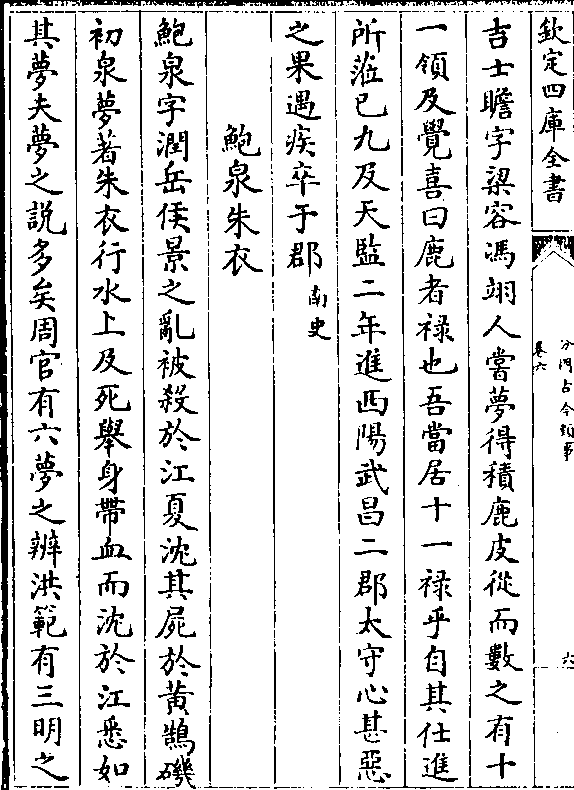 欽定四庫全書
分門古今類事
卷六
六
吉士瞻字梁容馮翊人嘗夢得積鹿皮從而數之有十
一領及覺喜曰鹿者祿也吾當居十一祿乎自其仕進
所蒞已九及天監二年進西陽武昌二郡太守心甚惡
之果遇疾卒于郡南史
鮑泉朱衣
鮑泉字潤岳侯景之亂被殺於江夏沈其屍於黃鵠磯
初泉夢著朱衣行水上及死舉身帶血而沈於江悉如
其夢夫夢之說多矣周官有六夢之辨洪範有三明之